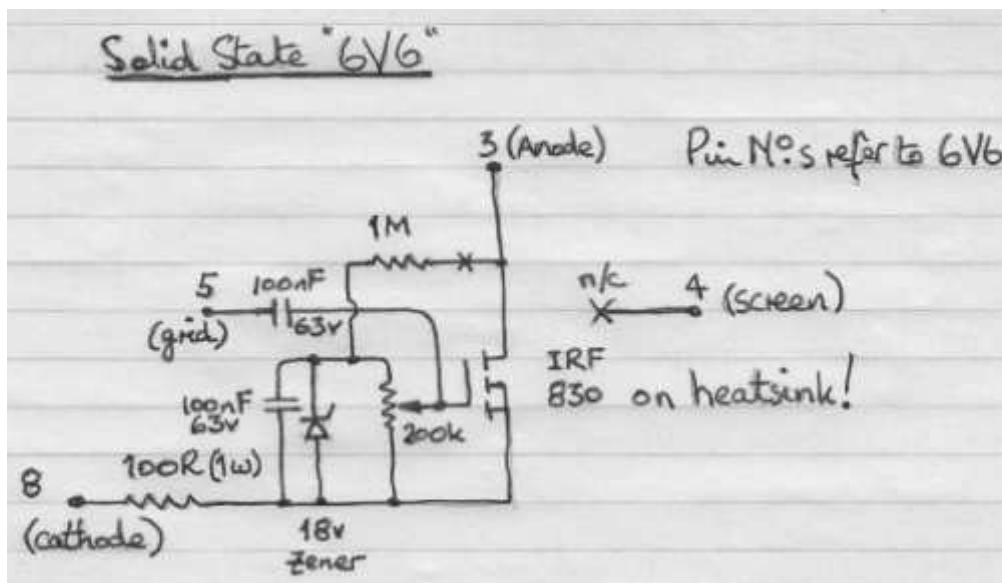 Solid State "6V6"
3 (Anode)
Pin Nº.s refer to 6V6
1M
5
100nF
n/c
4 (screen)
(grid)
63v
IRF
830 on heatsink!
100nF
63v
200k
100R (1w)
8
(cathode)
18v
Zener